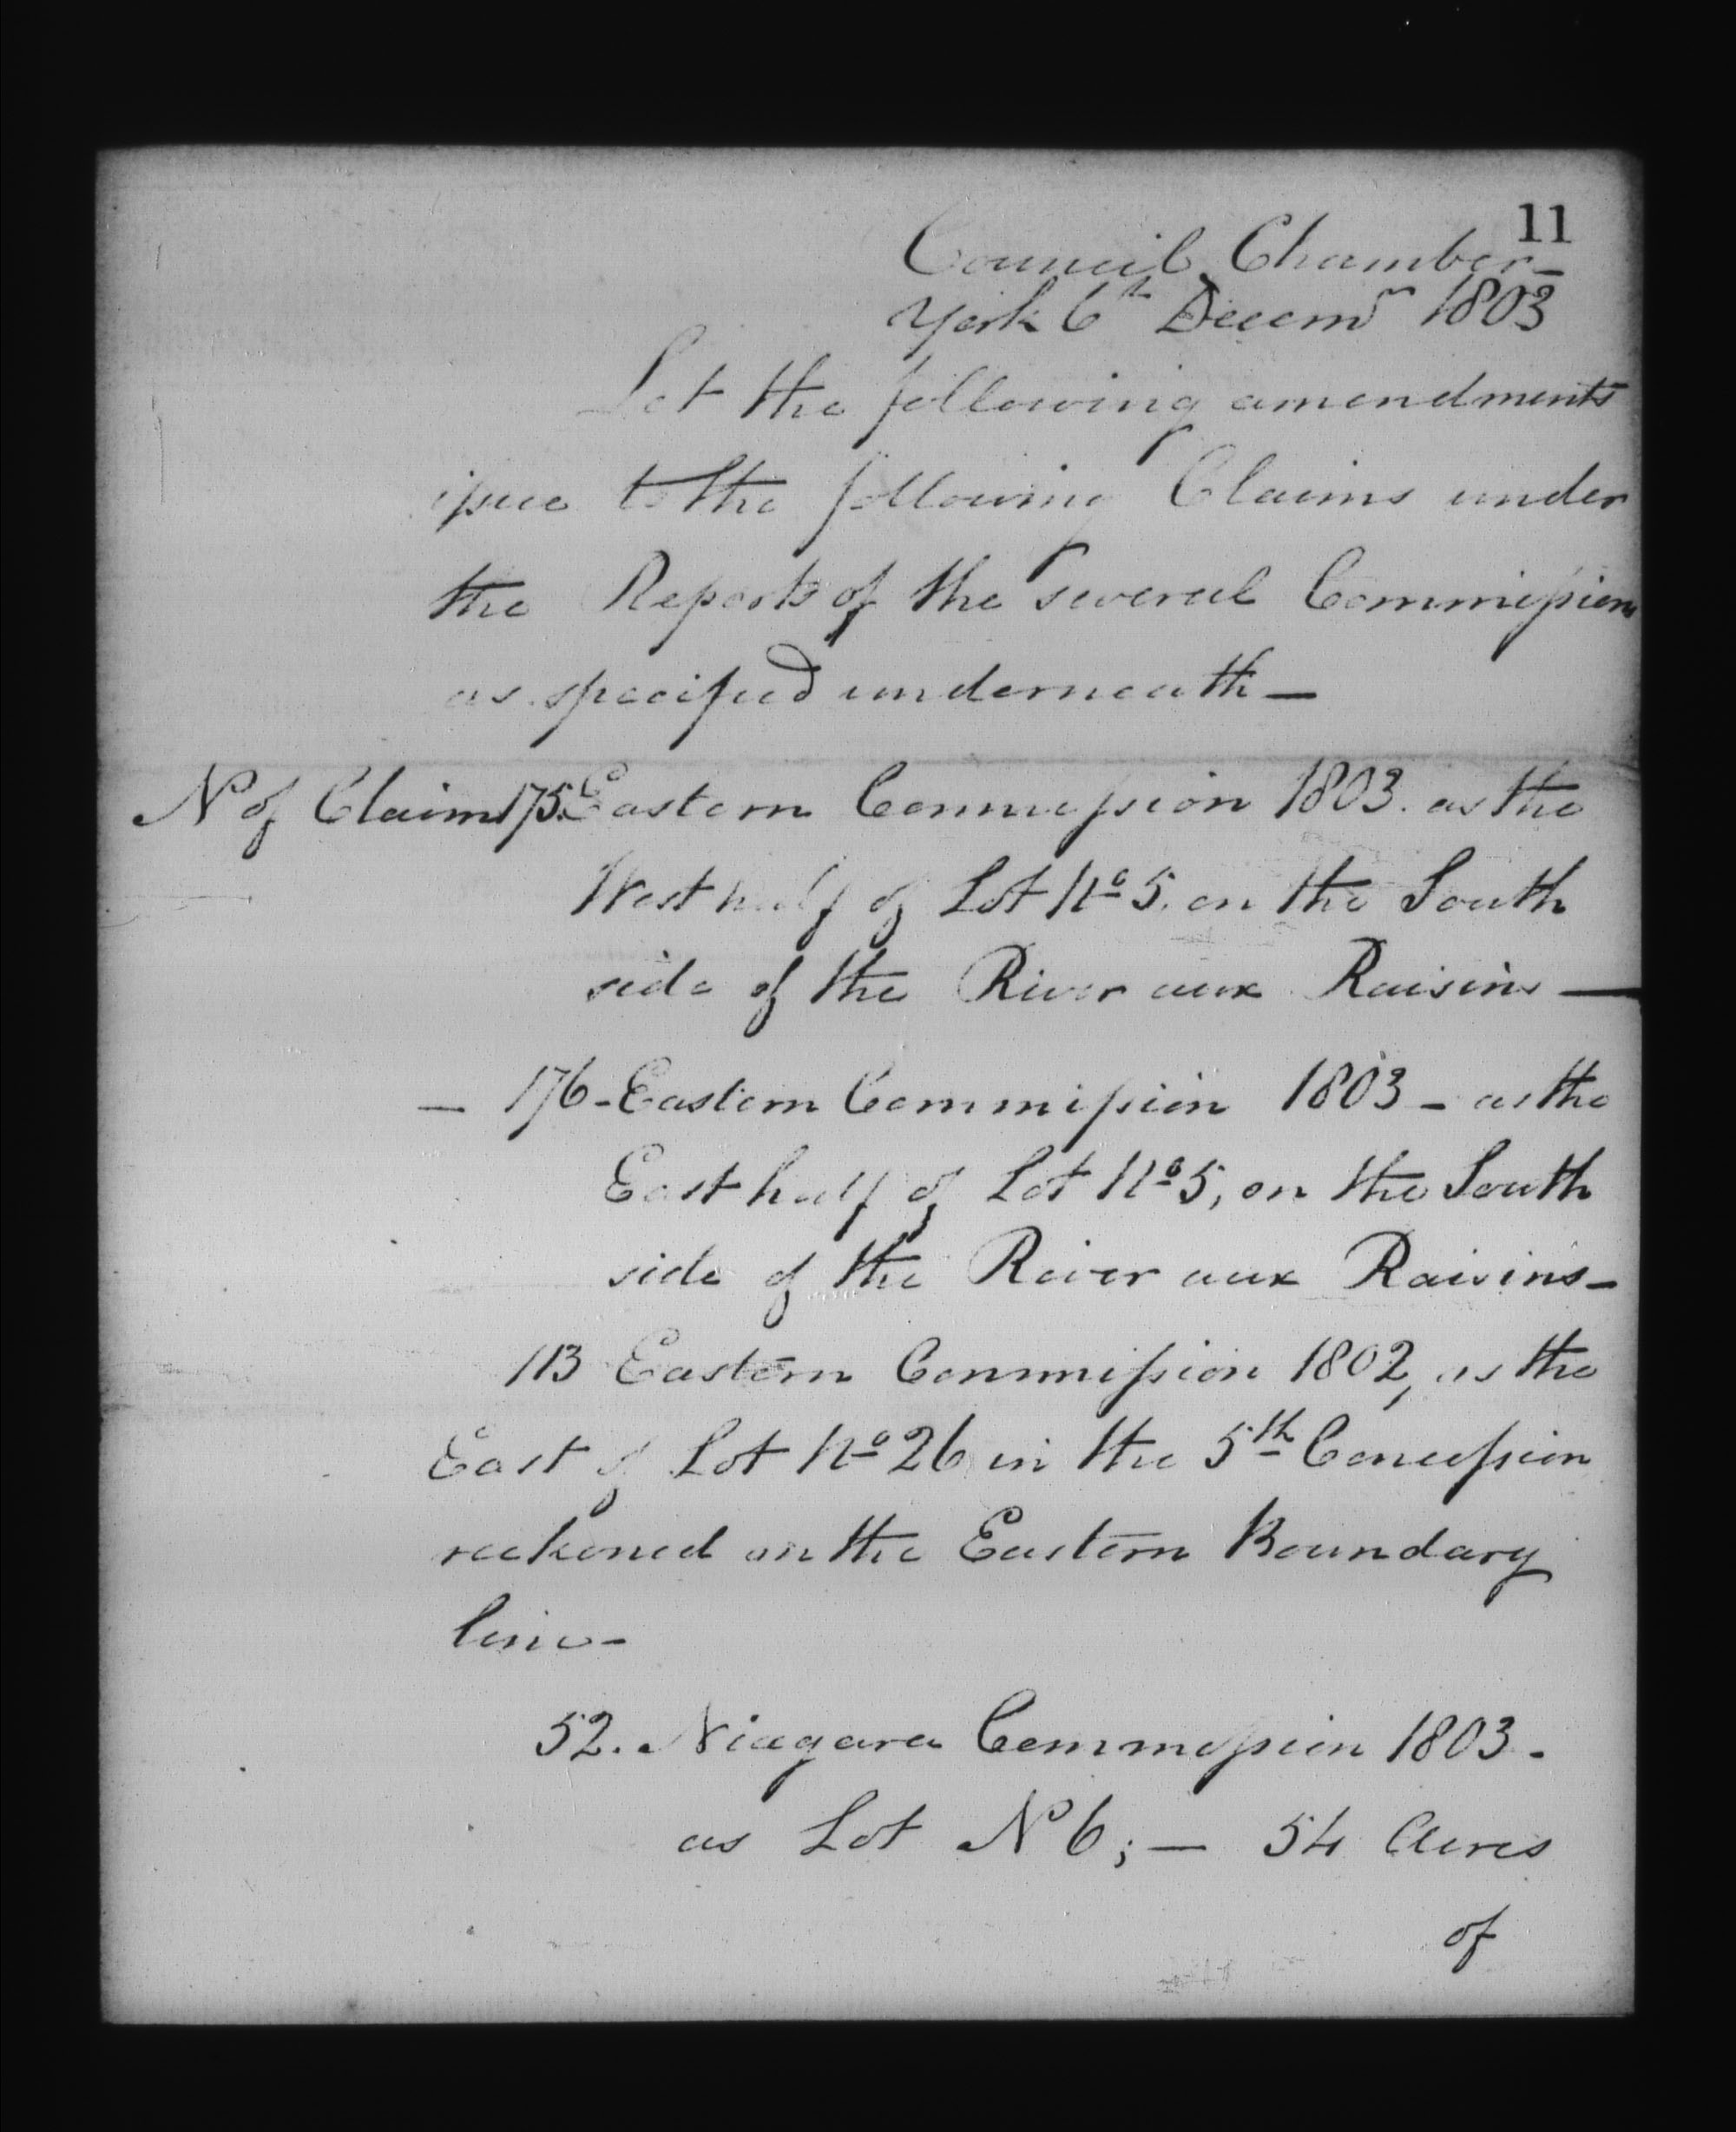 11
Council Chamber -
York 6th Decemr 1803
Let the following amendments
issue to the following Claims under
the Reports of the several Commissions
as specified underneath —
No of Claim 175. Eastern Commission 1803. as the
West half of Lot No 5. on the South
side of the River aux Raisins —
— 176 - Eastern Commission 1803 - as the
East half of Lot No 5, on the South
side of the River aux Raisins -
113 Eastern Commission 1802, as the
East of Lot No 26 in the 5th Concession
reckoned on the Eastern Boundary
line -
52. Niagara Commission 1803 -
as Lot No 6; — 54 Acres
of